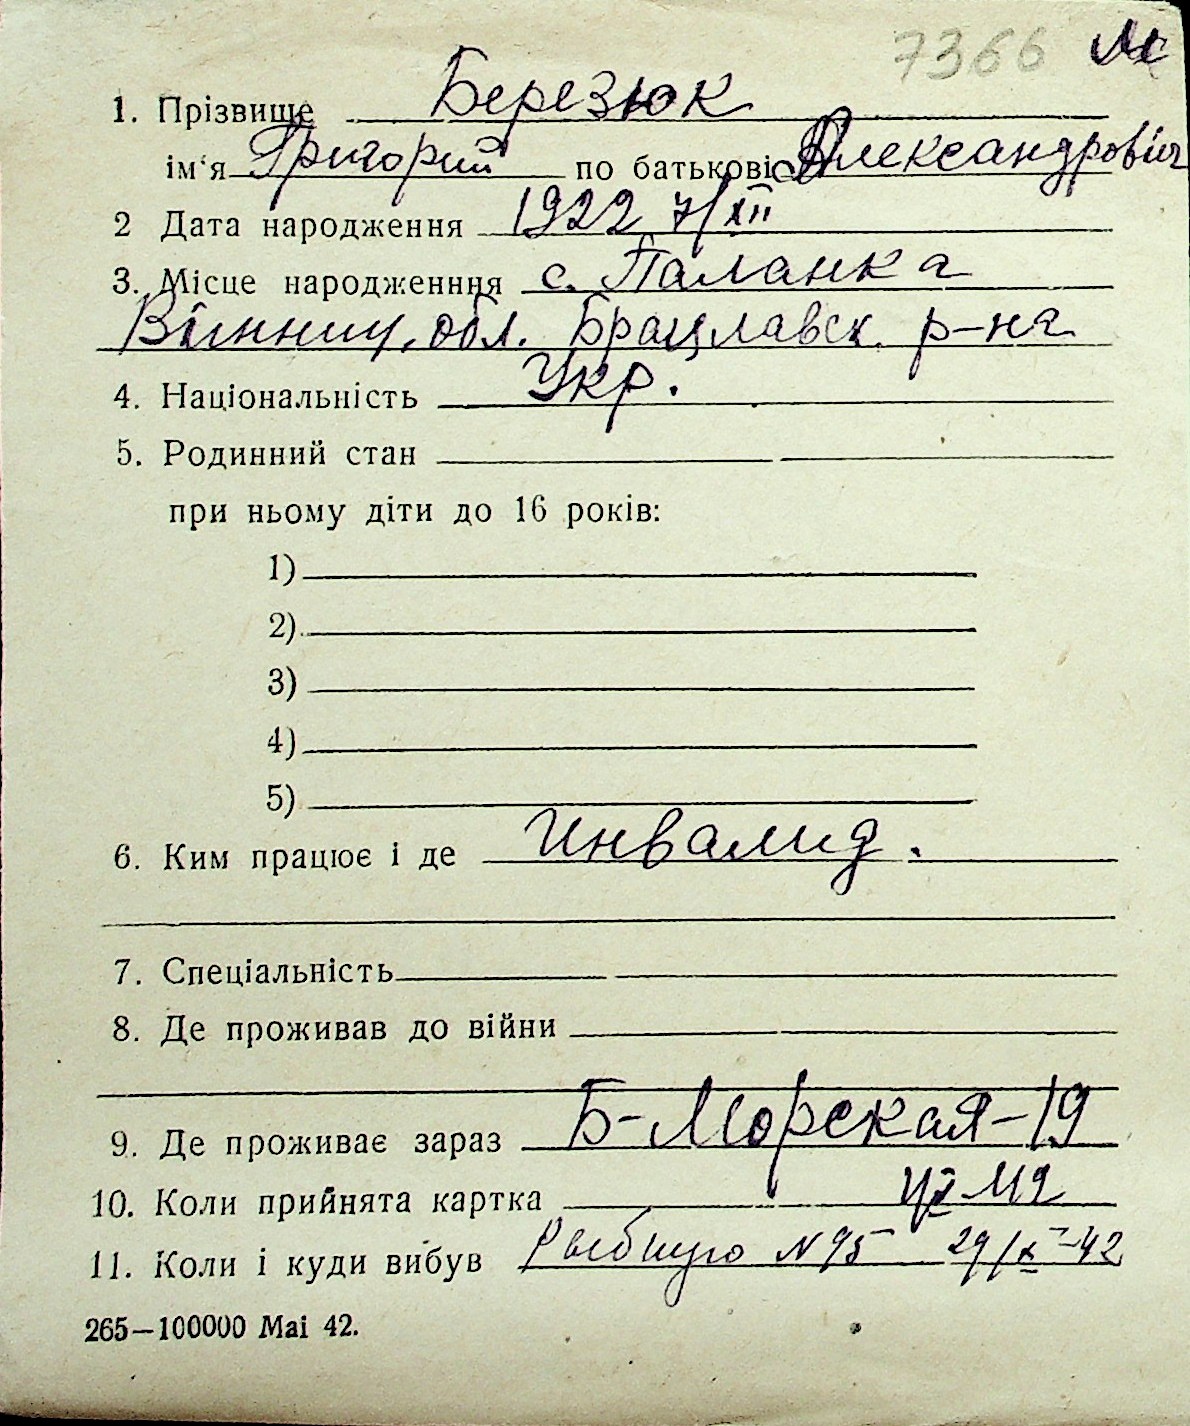 7366
1. Прізвище Березюк
ім'я Григорий по батькові Александрович
2 Дата народження 1922 7/XII
3. Місце народженння с. Паланка
Вінниц. обл. Брацлавск. р-на
4. Національність Укр.
5. Родинний стан
при ньому діти до 16 років:
1)
2)
3)
4)
5)
6. Ким працює і де Инвалид.
7. Спеціальність
8. Де проживав до війни
9. Де проживає зараз Б-Морская-19
10. Коли прийнята картка
11. Коли і куди вибув N 95 29/IX-42
265—100000 Mai 42.